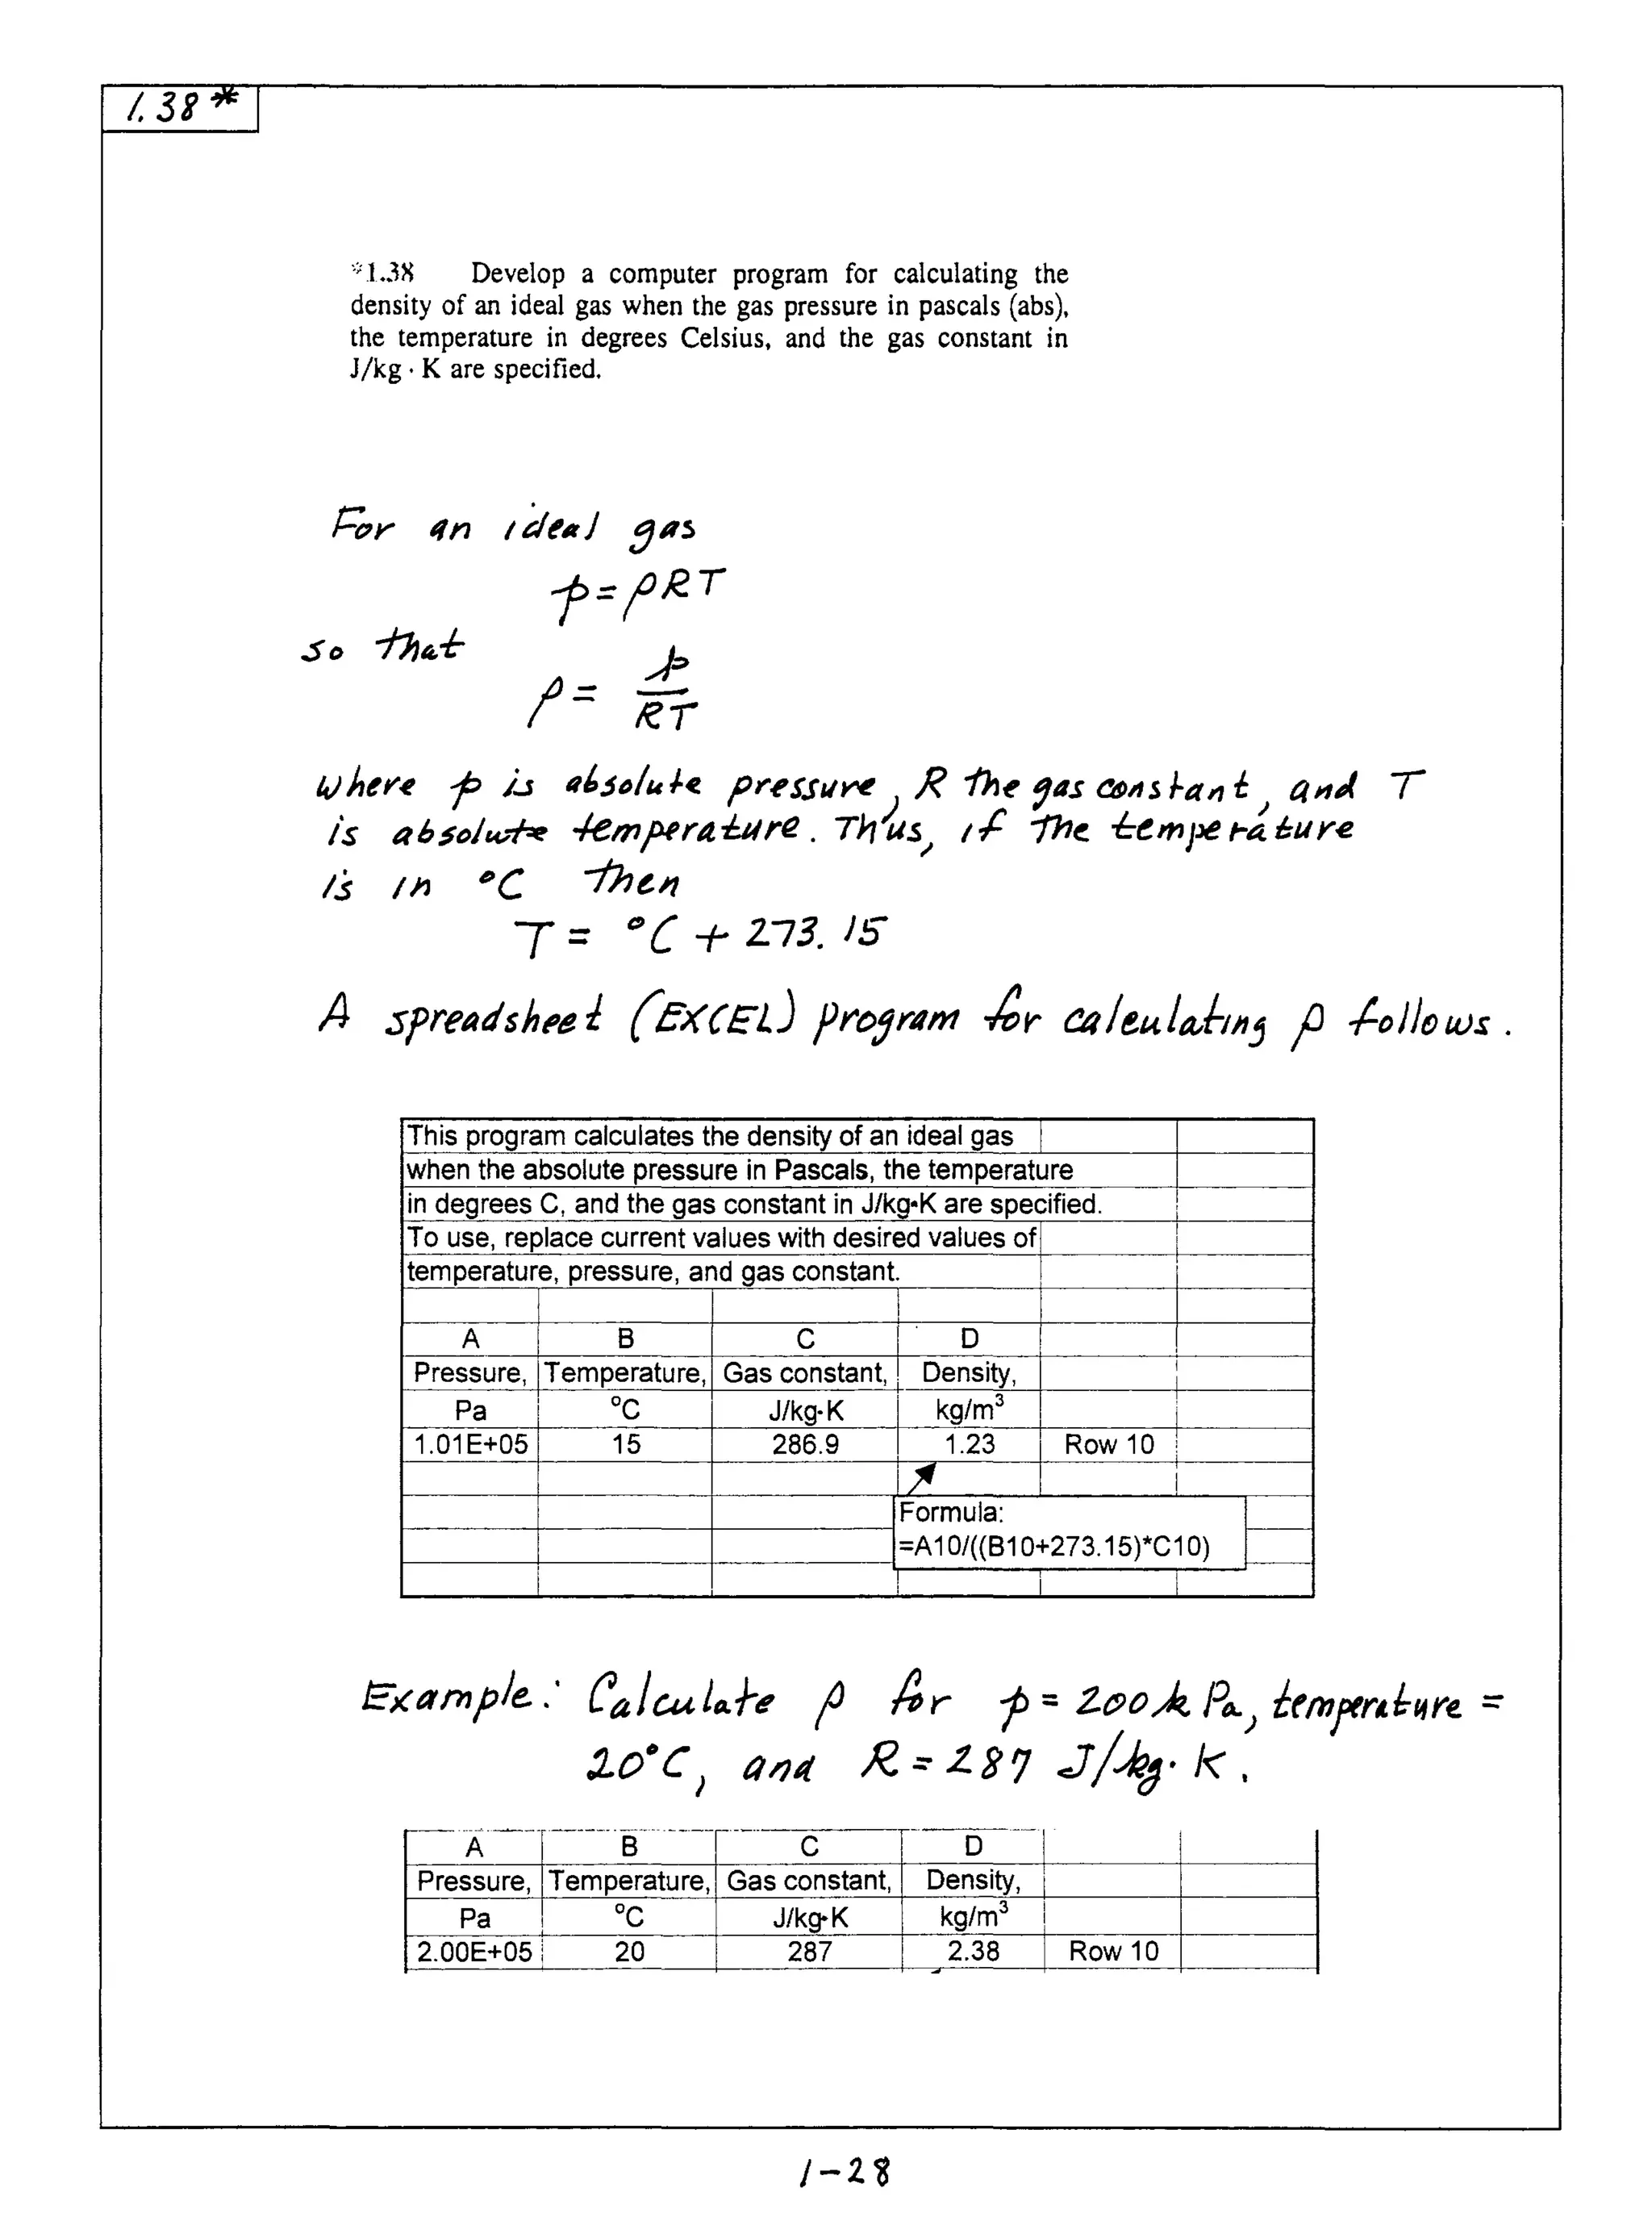 1.38*
*1.38 Develop a computer program for calculating the
density of an ideal gas when the gas pressure in pascals (abs),
the temperature in degrees Celsius, and the gas constant in
J/kg · K are specified.
For an ideal gas
p = ρRT
so that
ρ = p/RT
where p is absolute pressure, R the gas constant, and T
is absolute temperature. Thus, if the temperature
is in °C then
T = °C + 273.15
A spreadsheet (EXCEL) program for calculating ρ follows.
This program calculates the density of an ideal gas
when the absolute pressure in Pascals, the temperature
in degrees C, and the gas constant in J/kg·K are specified.
To use, replace current values with desired values of
temperature, pressure, and gas constant.
A B C D
Pressure, Temperature, Gas constant, Density,
Pa °C J/kg·K kg/m³
1.01E+05 15 286.9 1.23 Row 10
Formula:
=A10/((B10+273.15)*C10)
Example: Calculate ρ for p = 200 kPa, temperature =
20°C, and R = 287 J/kg·K.
A B C D
Pressure, Temperature, Gas constant, Density,
Pa °C J/kg·K kg/m³
2.00E+05 20 287 2.38 Row 10
1-28